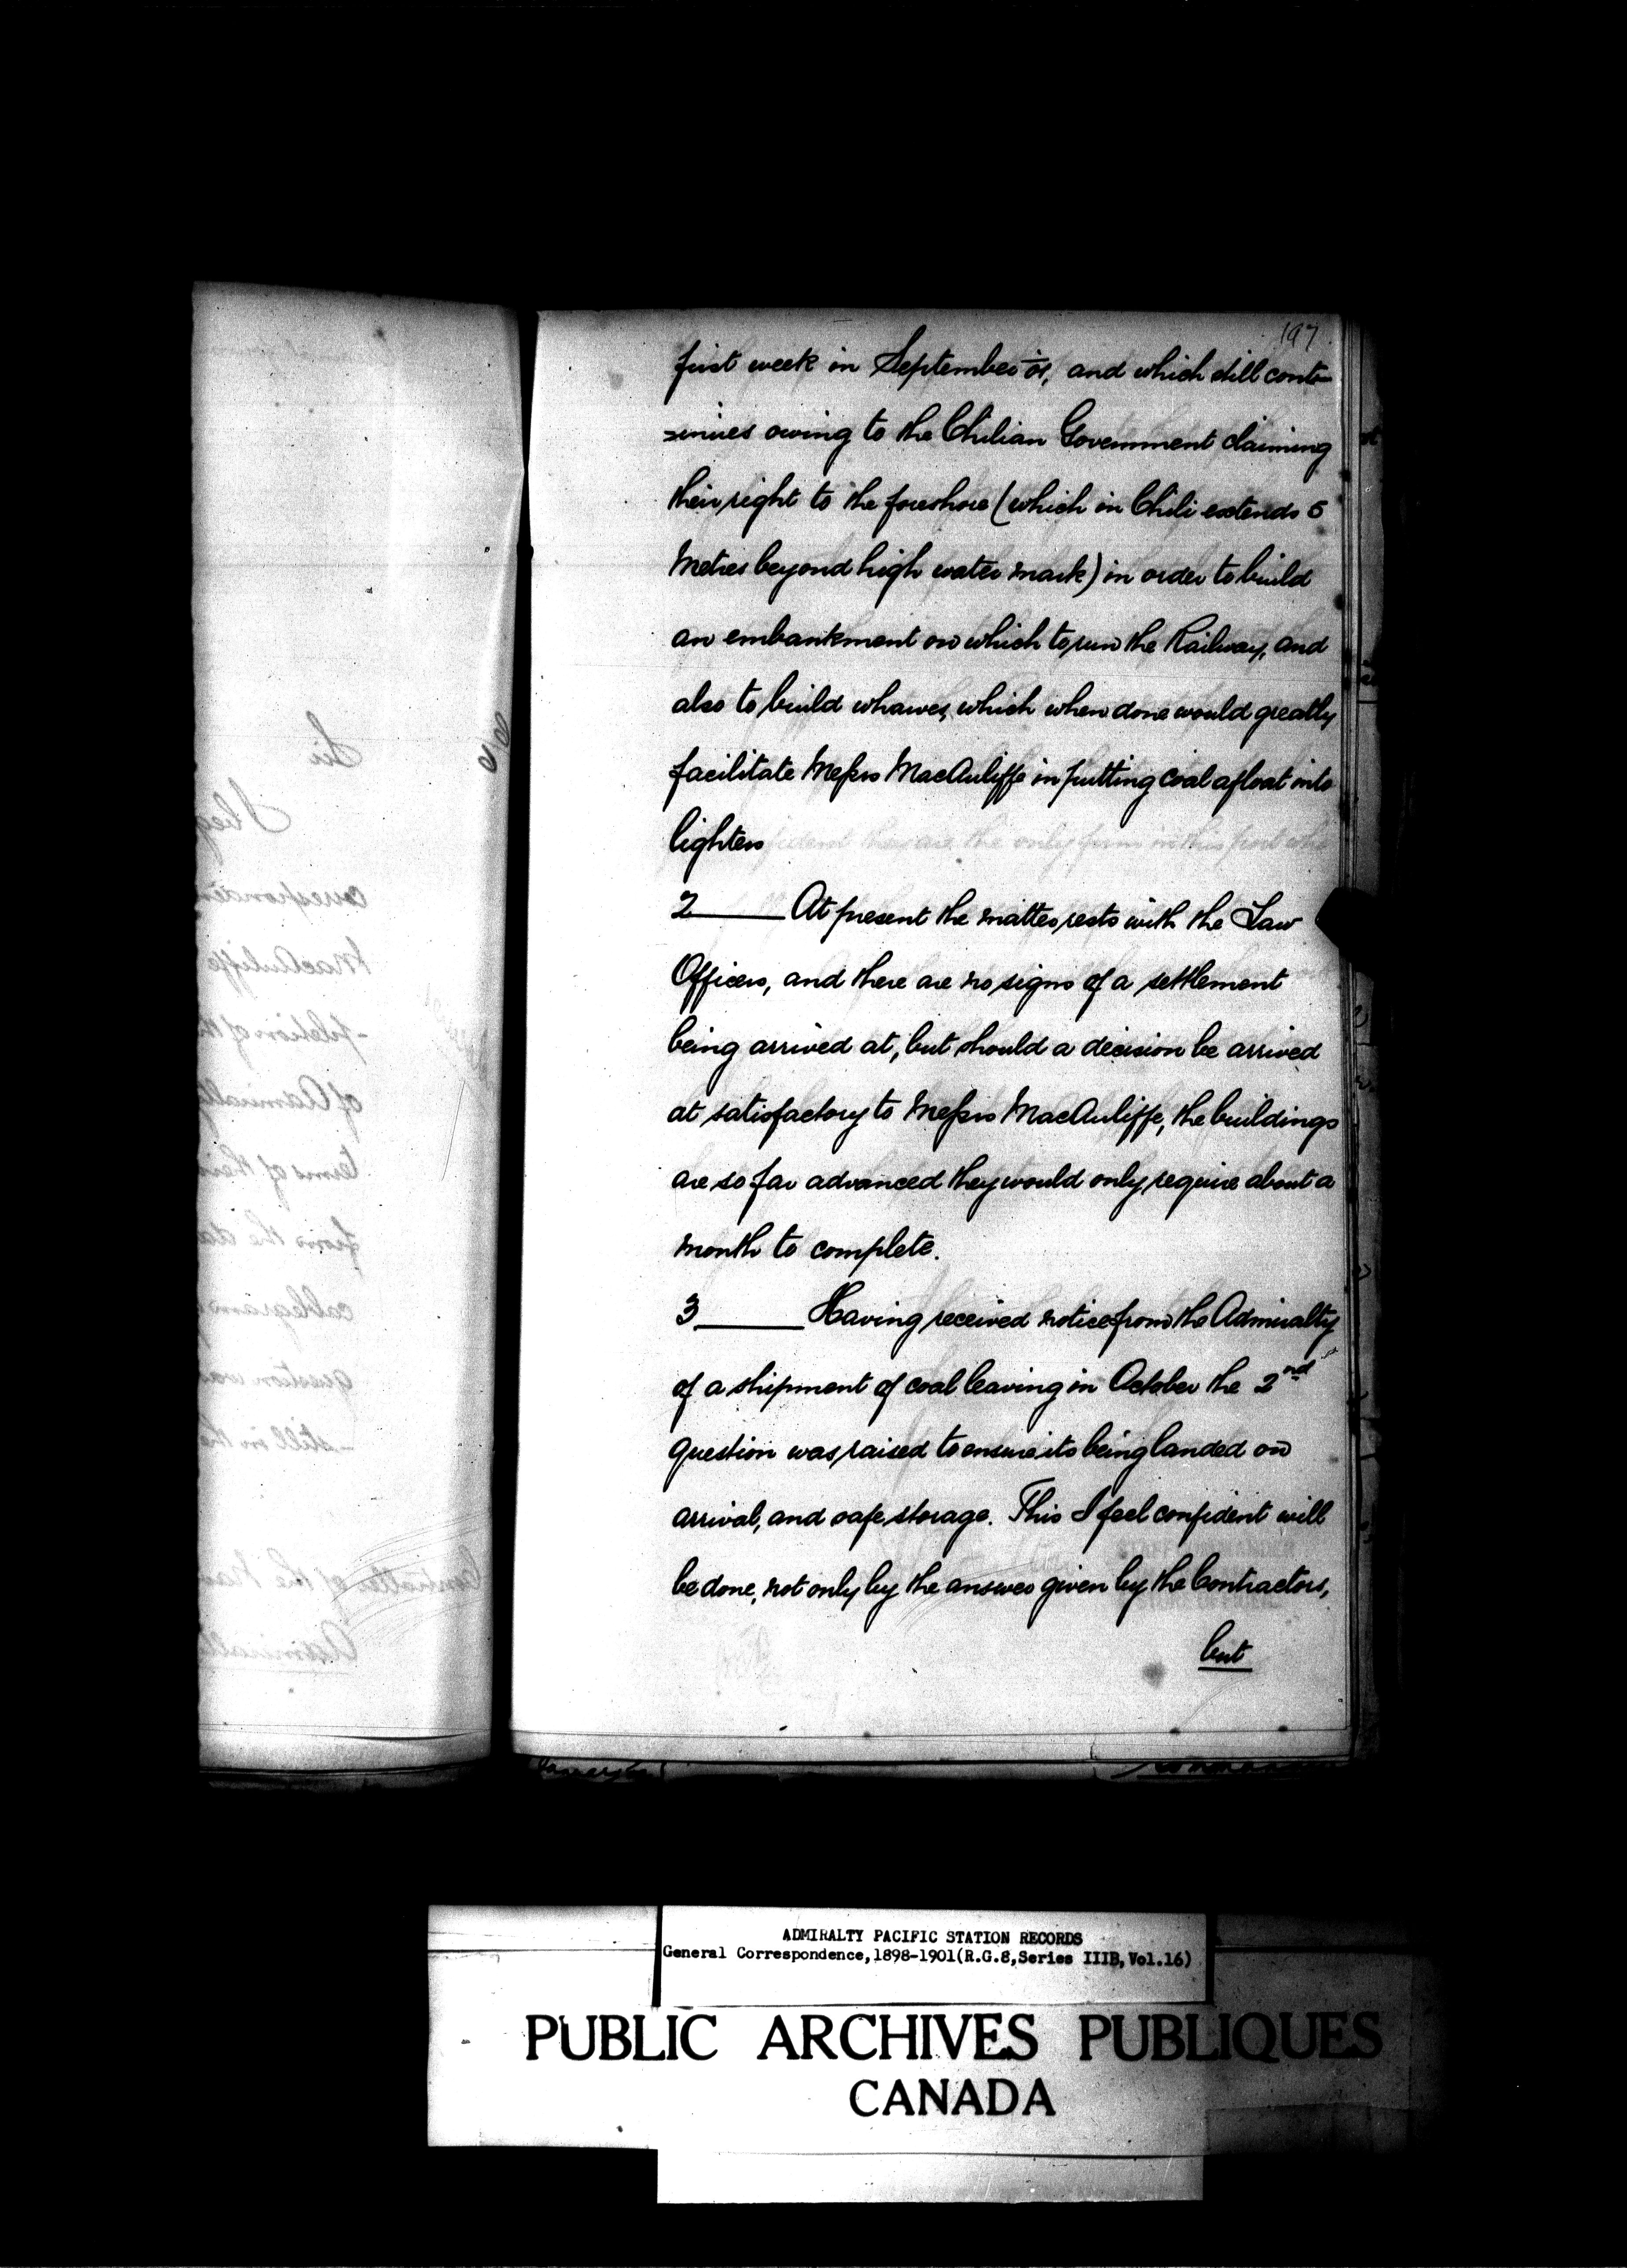 197
first week in September, and which still cont-
-inues owing to the Chilian Government claiming
their right to the foreshore (which in Chili extends 5
Metres beyond high water mark) in order to build
an embankment on which to run the Railway, and
also to build wharves, which when done would greatly
facilitate Messrs MacAuliffe in putting coal afloat into
lighters
2 At present the matter rests with the Law
Officers, and there are no signs of a settlement
being arrived at, but should a decision be arrived
at satisfactory to Messrs MacAuliffe, the buildings
are so far advanced they would only require about a
month to complete.
3 Having received notice from the Admiralty
of a shipment of coal leaving in October the 2nd
question was raised to ensure its being landed on
arrival, and safe storage. This I feel confident will
be done, not only by the answer given by the Contractors,
but
ADMIRALTY PACIFIC STATION RECORDS
General Correspondence,1898-1901(R.G.8,Series IIIB,Vol.16)
PUBLIC ARCHIVES PUBLIQUES
CANADA